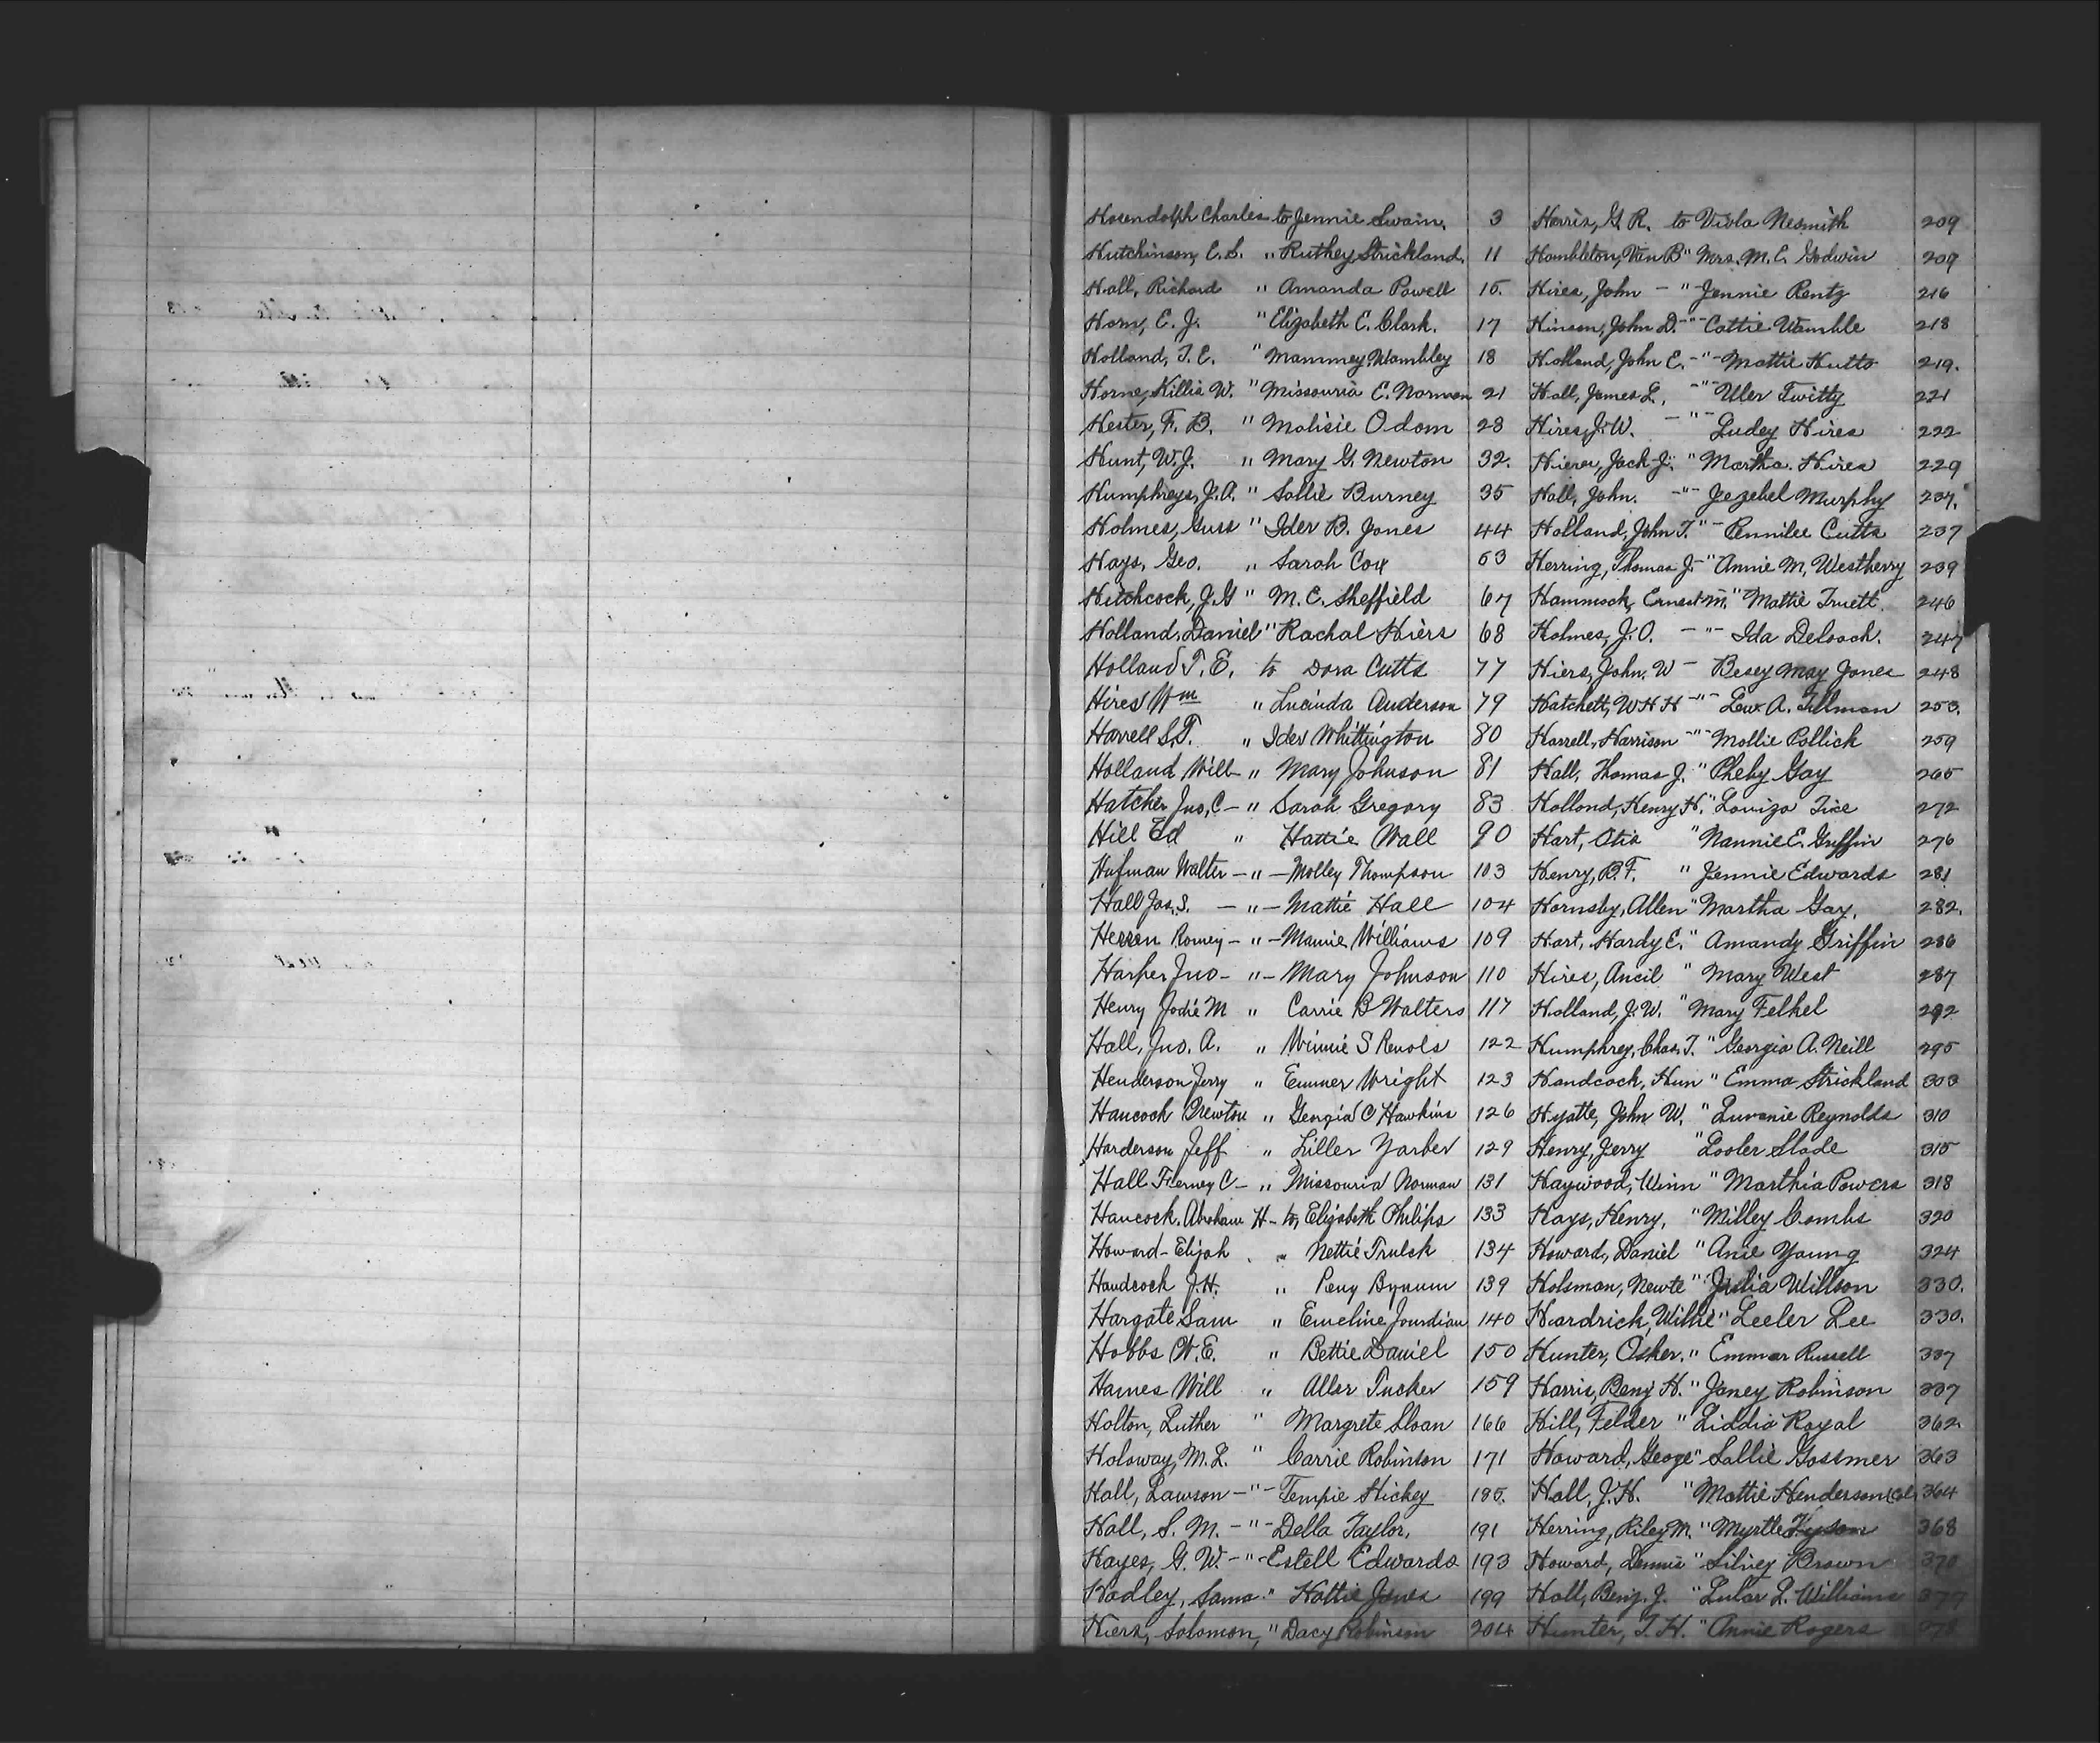 Hosendolph Charles to Jennie Swain. 3
Hutchinson, E. S. " Ruthey Strickland. 11
Hall, Richard " Amanda Powell 15.
Horn, E. J. " Elizabeth E. Clark. 17
Holland, T. E. " Mammey Wambley 18
Horne, Killis W. " Missouria E. Norman 21
Hester, F. B. " Malisie Odom 28
Hunt, W. J. " Mary G. Newton 32.
Humphreys, J. A. " Sallie Burney 35
Holmes, Guss " Ider B. Jones 44
Hays, Geo. " Sarah Cox 53
Hitchcock, J. G " M. E. Sheffield 67
Holland, Daniel " Rachal Hiers 68
Holland T. E. to Dora Cutts 77
Hires Wm " Lucinda Anderson 79
Harrell S. T. " Ider Whittington 80
Holland, Will " Mary Johnson 81
Hatcher Jno, C - " Sarah Gregory 83
Hill Ed " Hattie Wall 90
Hufman Walter - " - Molley Thompson 103
Hall Jas. S. - " - Mattie Hall 104
Herren Romey - " - Mamie Williams 109
Harper Jno - " - Mary Johnson 110
Henry Jodie M " Carrie B Walters 117
Hall, Jno. A. " Winnie S Renols 122
Henderson Jerry " Emmer Wright 123
Hancock Brewton " Georgia C Hawkins 126
Harderson Jeff " Liller Yarber 129
Hall Ferney C - " Missouria Norman 131
Hancock, Abraham H - to, Elizabeth Philips 133
Howard - Elijah " Nettie Trulck 134
Handcock J. H. " Peny Bynum 139
Hargate Sam " Emeline Jourdian 140
Hobbs W. E. " Bettie Daniel 150
Hames Will " Aller Tucker 159
Holton, Luther " Margrete Sloan 166
Holoway, M. L. " Carrie Robinson 171
Hall, Lawson - " - Tempie Hickey 185.
Hall, S. M. - " - Della Taylor, 191
Hayes, G. W. - " - Estell Edwards 193
Hadley, Sama " Hattie Jones 199
Hiers, Solomon, " Dacy Robinson 204
Harris, G. R. to Viola Nesmith 209
Hambleton, Van B " Mrs. M. E. Godwin 209
Hires, John - " Jennie Rentz 216
Hinson, John D. - " - Cattie Wamble 218
Holland, John E. - " - Mattie Hutto 219.
Hall, James L. - " - Uler Twitty 221
Hires, J. W. - " - Ludey Hires 222
Hierer, Jack J. " Martha Hires 229
Hall, John. - " - Jezebel Murphy 237.
Holland, John T. " - Pennilee Cutts 237
Herring, Thomas J. - " Annie M. Westberry 239
Hammock, Ernest M. " Mattie Truett. 246
Holmes, J. O. - " - Ida Deloach. 247
Hiers, John. W - Besey May Jones 248
Hatchett, W H H - " - Lew A. Tillman 253.
Harrell, Harrison - " - Mollie Pollick 259
Hall, Thomas J. " Pheby Gay 265
Holland, Henry H. " Louiza Tice 272
Hart, Otis " Nannie E. Griffin 276
Henry, B. F. " Jennie Edwards 281
Hornsby, Allen " Martha Gay. 282.
Hart, Hardy E. " Amandy Griffin 286
Hires, Ancil " Mary West 287
Holland, J. W. " Mary Felkel 292
Humphrey, Chas. T. " Georgia A. Neill 295
Handcock, Hun " Emma Strickland 303
Hyatte, John W. " Luvenie Reynolds 310
Henry, Jerry " Looler Slade 315
Haywood, Winn " Marthia Powers 318
Hays, Henry, " Milley Combs 320
Howard, Daniel " Anie Young 324
Holsman, Newte " Julia Willson 330.
Hardrick, Willie " Leeler Lee 330.
Hunter, Osker. " Emmer Russell 337
Harris, Benj H. " Janey Robinson 337
Hill, Felder " Liddia Royal 362
Howard, Geoge " Sallie Gossmer 363
Hall, J. H. " Mattie Henderson (Col 364
Herring, Riley M. " Myrtle Tyson 368
Howard, Dennis " Silvey Brown 370
Hall, Benj. J. " Lular L. Williams 377
Hunter, T. H. " Annie Rogers